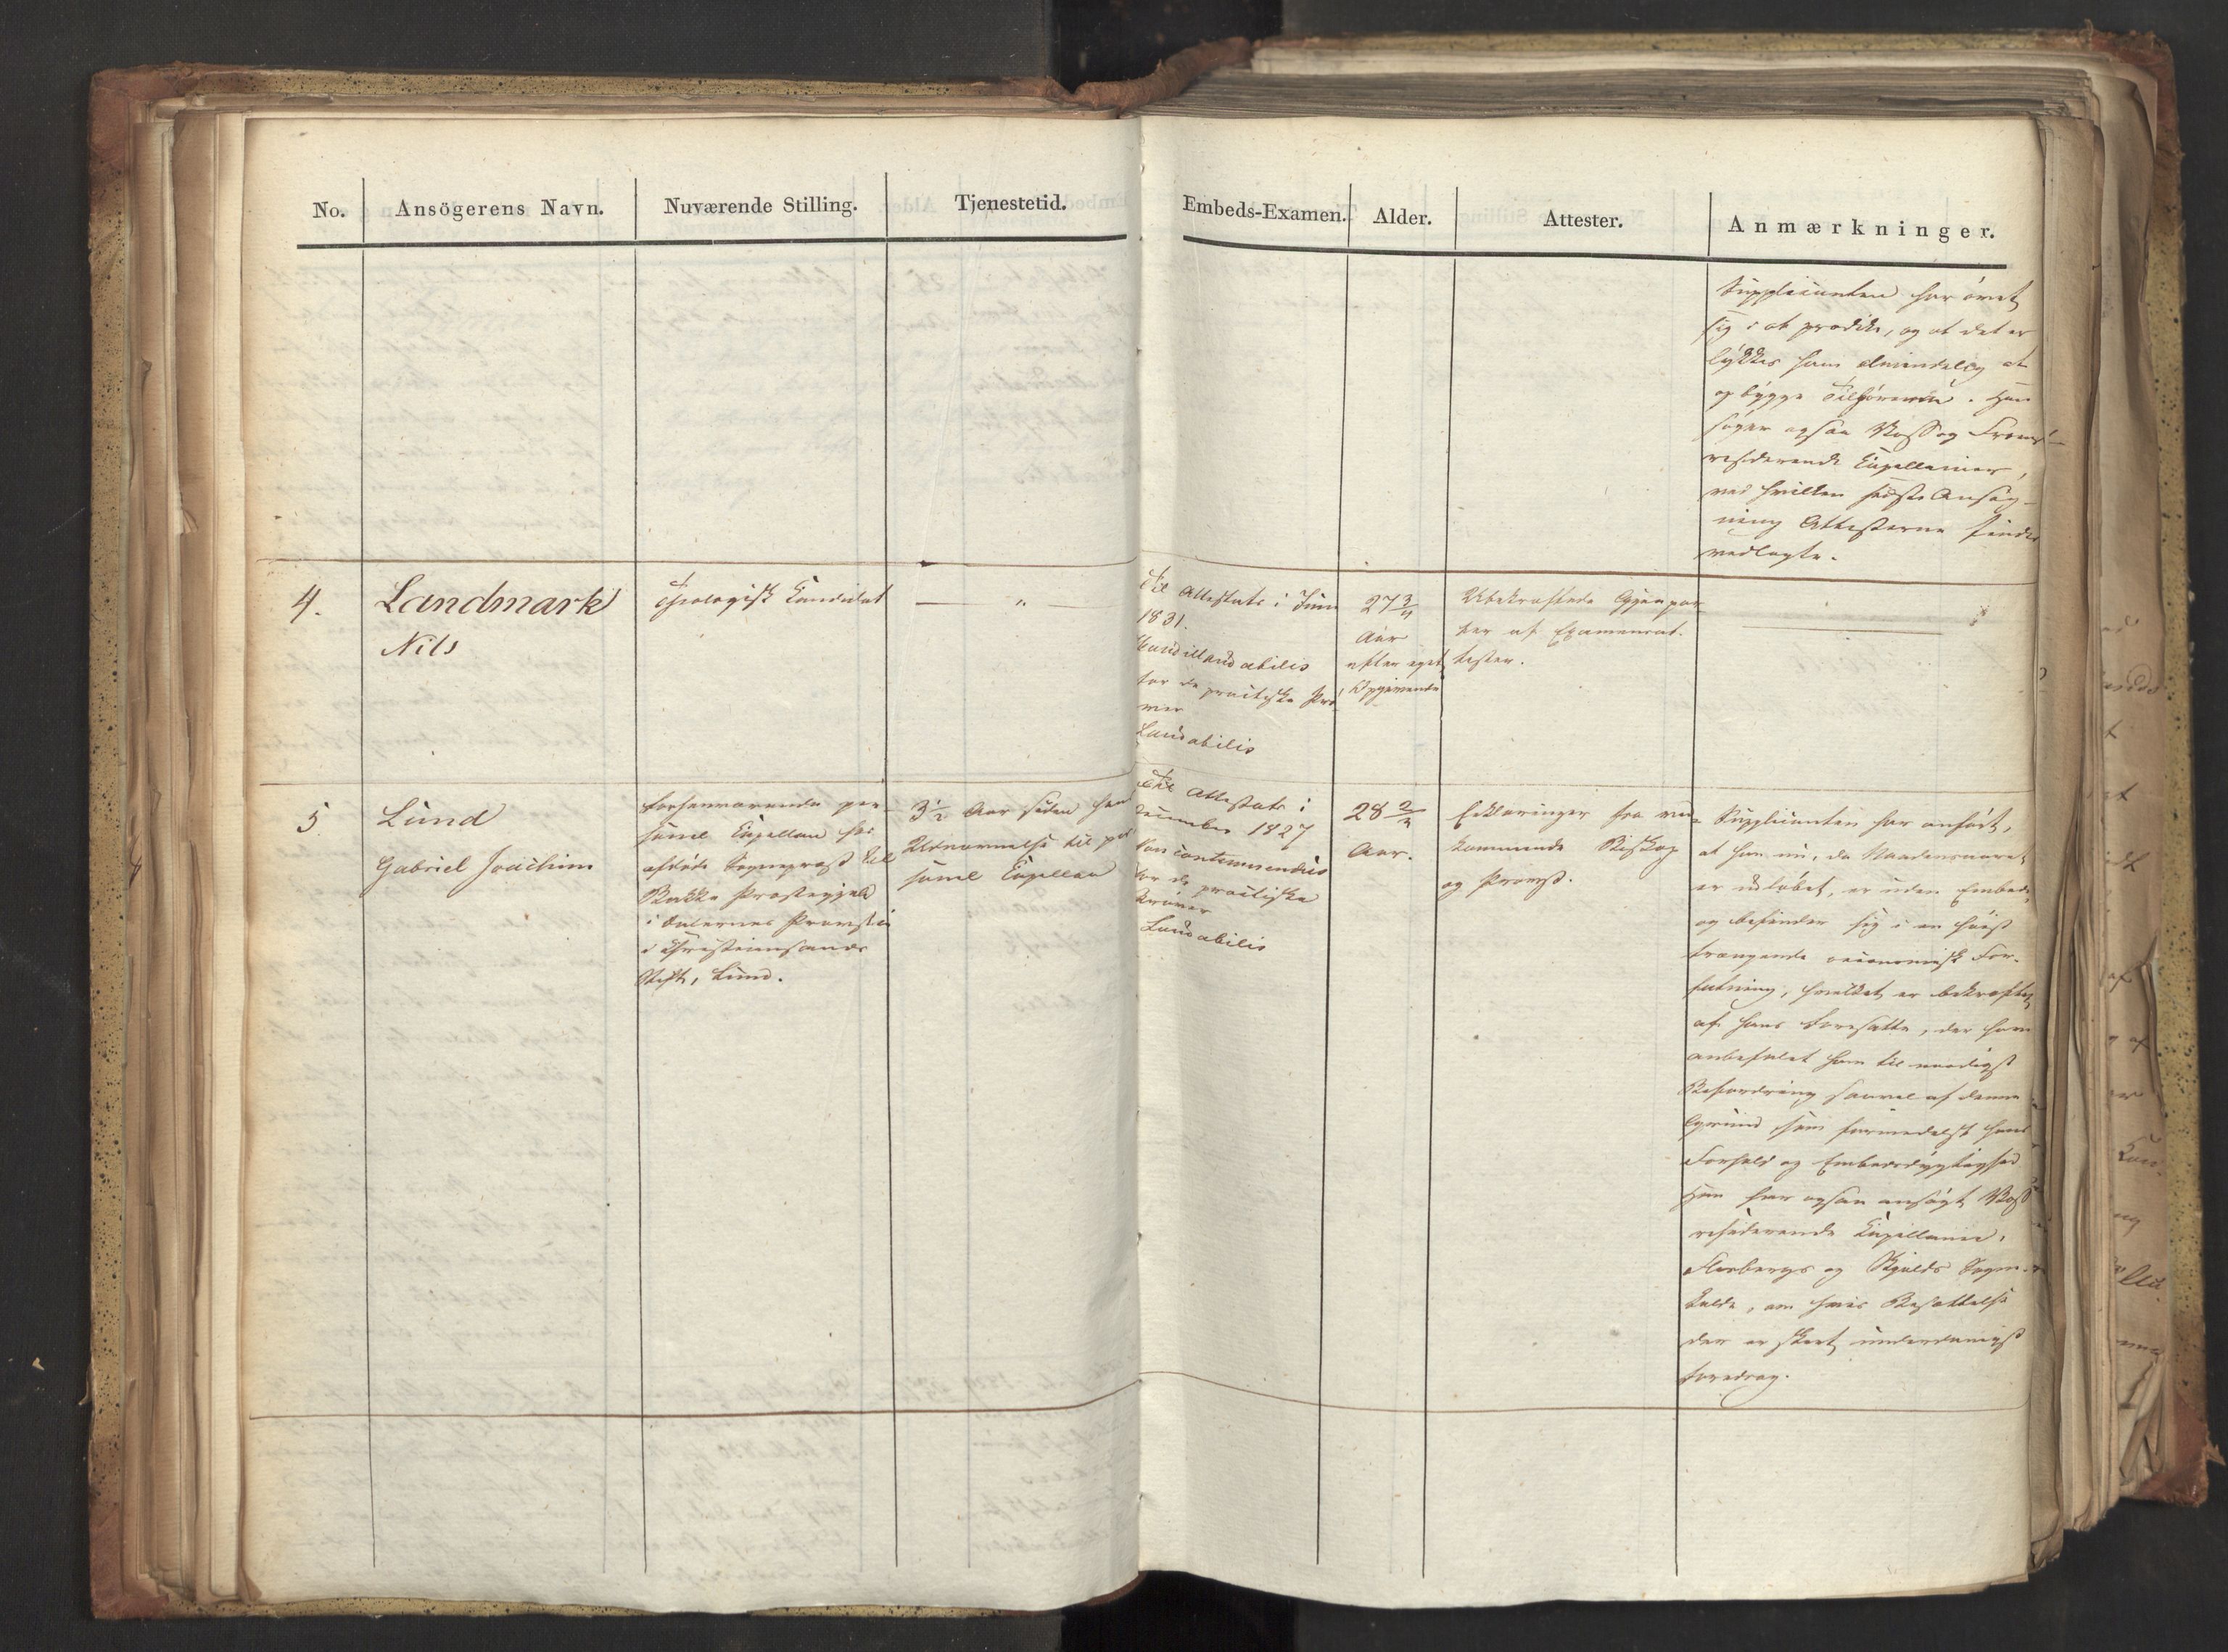 No. Ansögerens Navn. Nuværende Stilling. Tjenestetid. Embeds-Examen. Alder. Attester. Anmærkninger.
Supplicanten har övet
sig i at prædike, og at det er
lykkes ham almindelig at
opbygge Tilhörerne. Han
söger ogsaa Voss og
residerende Capellanier,
ved hvilken sidste Ansög-
ning Attesterne findes
vedlagte.
4.
Landmark
Nils
theologisk Candidat
— „ —
Til Attestats i Juni
1831.
Haud illaudabilis
for de practiske Prö-
ver
Laudabilis
27 3/4
Aar
efter eget
Opgivende
Ubekræftede Gjenpar-
ter af Examensat-
tester.
5.
Lund
Gabriel Joachim
forhenværende per-
sonel Capellan hos
afdöde Sognepræst til
Bakke Præstegjeld
i Provsti
i Christiansands
Stift, Lund.
3 1/2 Aar siden hans
Udnævnelse til per-
sonel Capellan
Til Attestats i
December 1827
Non contemnendus
for de practiske
Pröver
Laudabilis
28 2/3
Aar.
Erklæringer fra ved-
kommende Biskop
og Provst.
Supplicanten har anfört,
at han nu, da Naadensaaret
er udlöbet, er uden Embede,
og befinder sig i en höist
trængende oeconomisk For-
fatning, hvilket er bekræftet
af hans Foresatte, der have
anbefalet ham til naadigst
Befordring saavel af denne
Grund som formedelst hans
Forhold og Embedsdygtighed
Han har ogsaa ansögt Voss
residerende Capellanie,
Flesbergs og Skjolds Sogne-
kalde, om hvis Besættelse
der er skeet underdanigst
Foredrag.